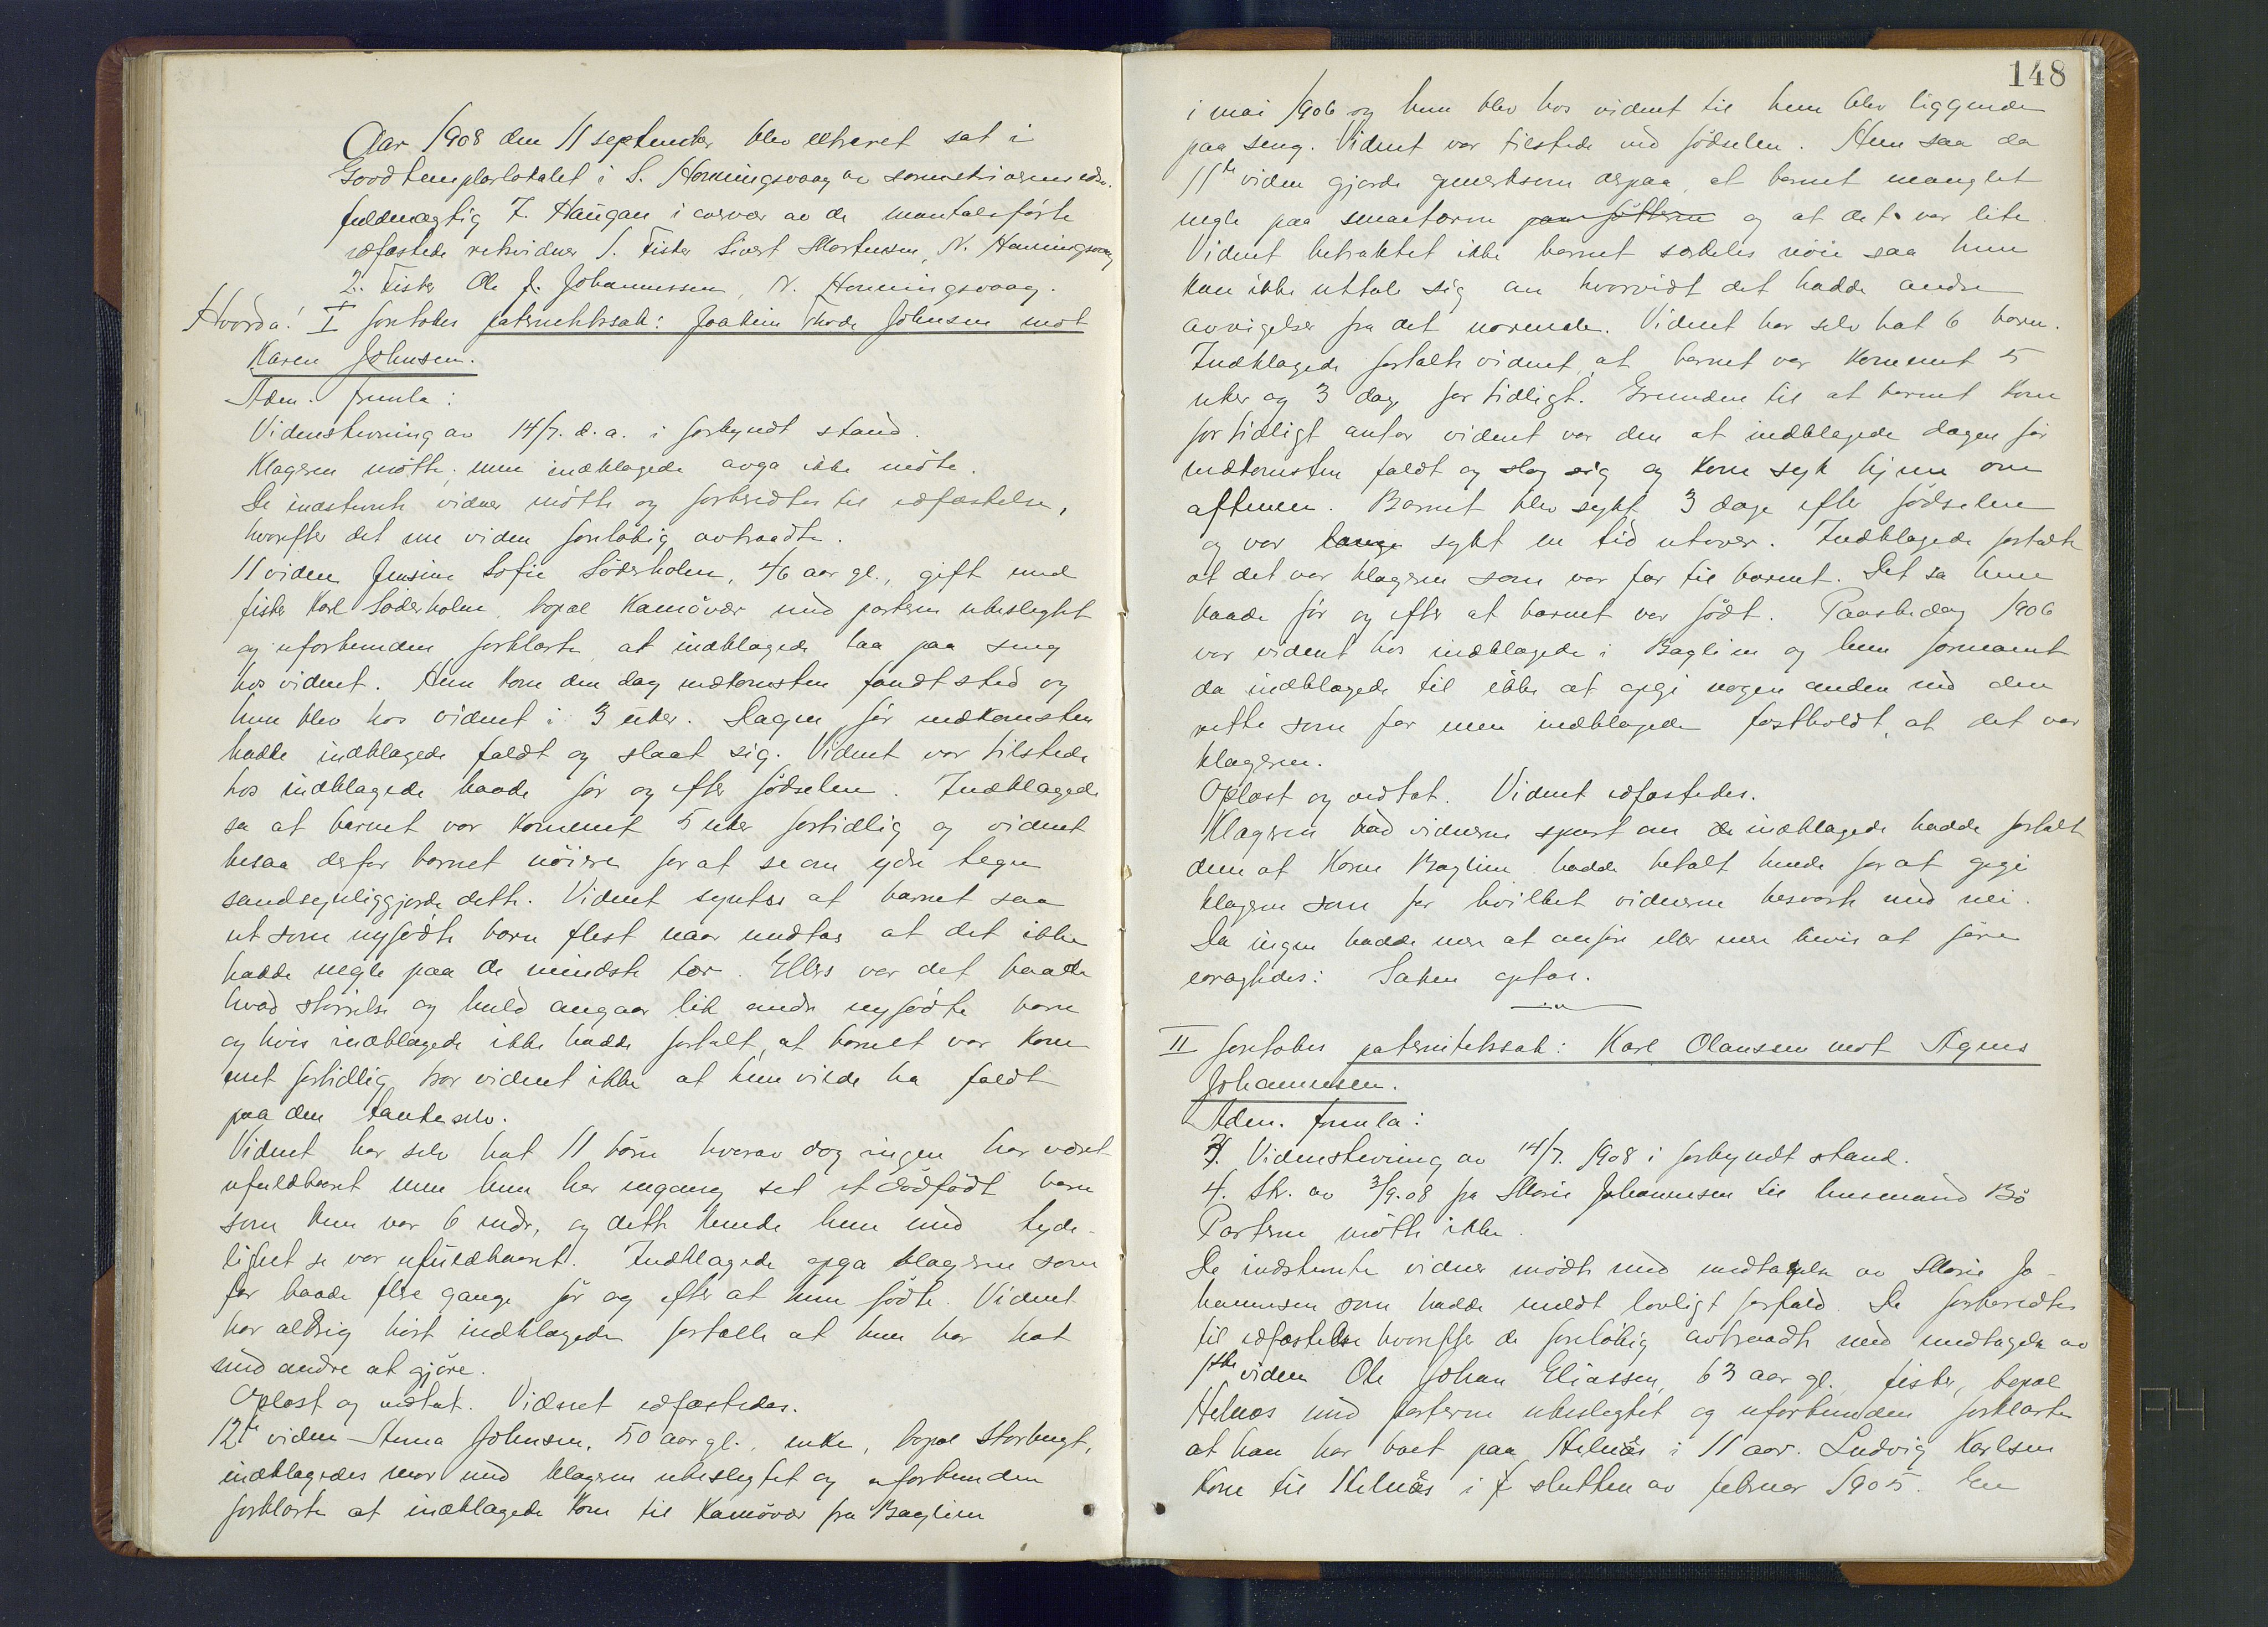 Aar 1908 den 11 september blev extraret sat i
Goodtemplarlokalet i S. Honningsvaag av sorenskriverens edsv.
fuldmægtig Z. Haugan i overvær av de mantalsførte
edfæstede retsvidner 1. Fisker Sivert Mortensen, N. Honningsvaag
2. Fisker Ole J. Johannessen, N. Honningsvaag.
Hvorda! I foretokes paternitetssak: Joakim Thode Johnsen mot
Karen Johnsen.
Adm. fremla:
Vidnestevning av 14/7. d. a. i forkyndt stand.
Klageren møtte, men indklagede avga ikke møte.
De indstevnte vidner møtte og forberedtes til edfæstelse,
hvorefter det ene vidne foreløbig avtraadte.
11 vidne Jensine Sofie Søderholm, 46 aar gl., gift med
fisker Karl Søderholm, bopæl Kamøvær med parterne ubeslegtet
og uforbunden forklarte, at indklagede laa paa seng
hos vidnet. Hun kom den dag nedkomsten fandt sted og
hun blev hos vidnet i 3 uker. Dagen før nedkomsten
hadde indklagede faldt og slaat sig. Vidnet var tilstede
hos indklagede baade før og efter fødselen. Indklagede
sa at barnet var kommet 5 uker fortidlig og vidnet
besaa derfor barnet nøiere for at se om ydre tegn
sandsynliggjorde dette. Vidnet syntes at barnet saa
ut som nyfødte barn flest naar undtas at det ikke
hadde negle paa de mindste tær. Ellers var det baade
hvad størrelse og huld angaar lik andre nyfødte barn
og hvis indklagede ikke hadde fortalt, at barnet var kom-
met fortidlig tror vidnet ikke at hun vilde ha faldt
paa den tanke selv.
Vidnet har selv hat 11 børn hvorav dog ingen har været
ufuldbaaret men hun har engang set et dødfødt barn
som kun var 6 mdr, og dette kunde hun med tyde-
lighet se var ufuldbaaret. Indklagede opga klageren som
far baade flere gange før og efter at hun fødte. Vidnet
har aldrig hørt indklagede fortælle at hun har hat
med andre at gjøre.
Oplæst og vedtat. Vidnet edfæstedes.
12te vidne Anna Johnsen, 50 aar gl., enke, bopæl Storbugt,
indklagedes mor med klageren ubeslegtet og uforbunden
forklarte at indklagede kom til Kamøvær fra Baglien
148
i mai 1906 og hun blev hos vidnet til hun blev liggende
paa seng. Vidnet var tilstede ved fødselen. Hun saa da
11te vidne gjorde opmerksom derpaa, at barnet manglet
negle paa smaatærne paa føtterne og at det var lite.
Vidnet betraktet ikke barnet særdeles nøie saa hun
kan ikke uttale sig om hvorvidt det hadde andre
avvigelser fra det normale. Vidnet har selv hat 6 barn.
Indklagede fortalte vidnet, at barnet var kommet 5
uker og 3 dage for tidligt. Grunden til at barnet kom
for tidligt antar vidnet var den at indklagede dagen før
nedkomsten faldt og slog sig og kom syk hjem om
aftenen. Barnet blev sykt 3 dage efter fødselen
og var længe sykt en tid utover. Indklagede fortalte
at det var klageren som var far til barnet. Det sa hun
baade før og efter at barnet var født. Paaskedag 1906
var vidnet hos indklagede i Baglien og hun formanet
da indklagede til ikke at opgi nogen anden end den
rette som far men indklagede fastholdt, at det var
klageren.
Oplæst og vedtat. Vidnet edfæstedes.
Klageren bad vidnerne spurt om de indklagede hadde fortalt
dem at Karen Baglien hadde betalt hende for at opgi
klageren som far hvilket vidnerne besvarte med nei.
Da ingen hadde mere at anføre eller mere bevis at føre
eragtedes: Saken optas.
II foretokes paternitetssak: Karl Olaussen mot Agnes
Johannesen.
Adm. fremla:
3. Vidnestevning av 14/7. 1908 i forkyndt stand.
4. Skr. av 3/9.08 fra Marie Johannesen til lensmand Bø
Parterne møtte ikke.
De indstevnte vidner mødte med undtagelse av Marie Jo-
hannesen som hadde meldt lovligt forfald. De forberedtes
til edfæstelse hvorefter de foreløbig avtraadte med undtagelse av
1ste vidne Ole Johan Eliassen, 63 aar gl. fisker, bopæl
Helnæs med parterne ubeslegtet og uforbunden forklarte
at han har boet paa Helnæs i 11 aar. Ludvig Karlsen
kom til Helnæs i slutten av februar 1905. En